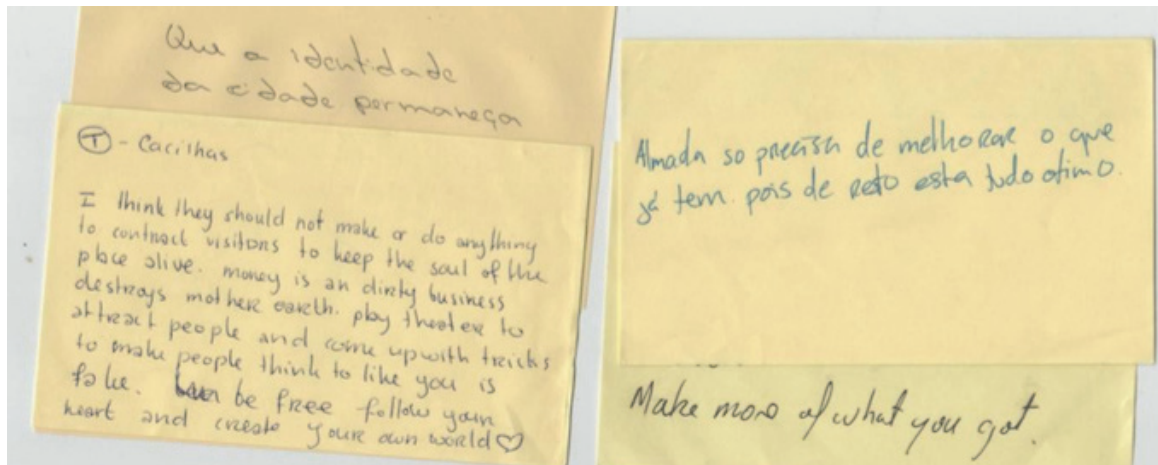 Que a identidade
da cidade permaneça
T - Cacilhas
I think they should not make or do anything
to contract visitors to keep the soul of the
place alive. money is an dirty business
destroys mother earth. play theater to
attract people and come up with tricks
to make people think to like you is
fake. be free follow your
heart and create your own world♡
Almada so precisa de melhorar o que
já tem. pois de resto esta tudo otimo.
Make more of what you got.